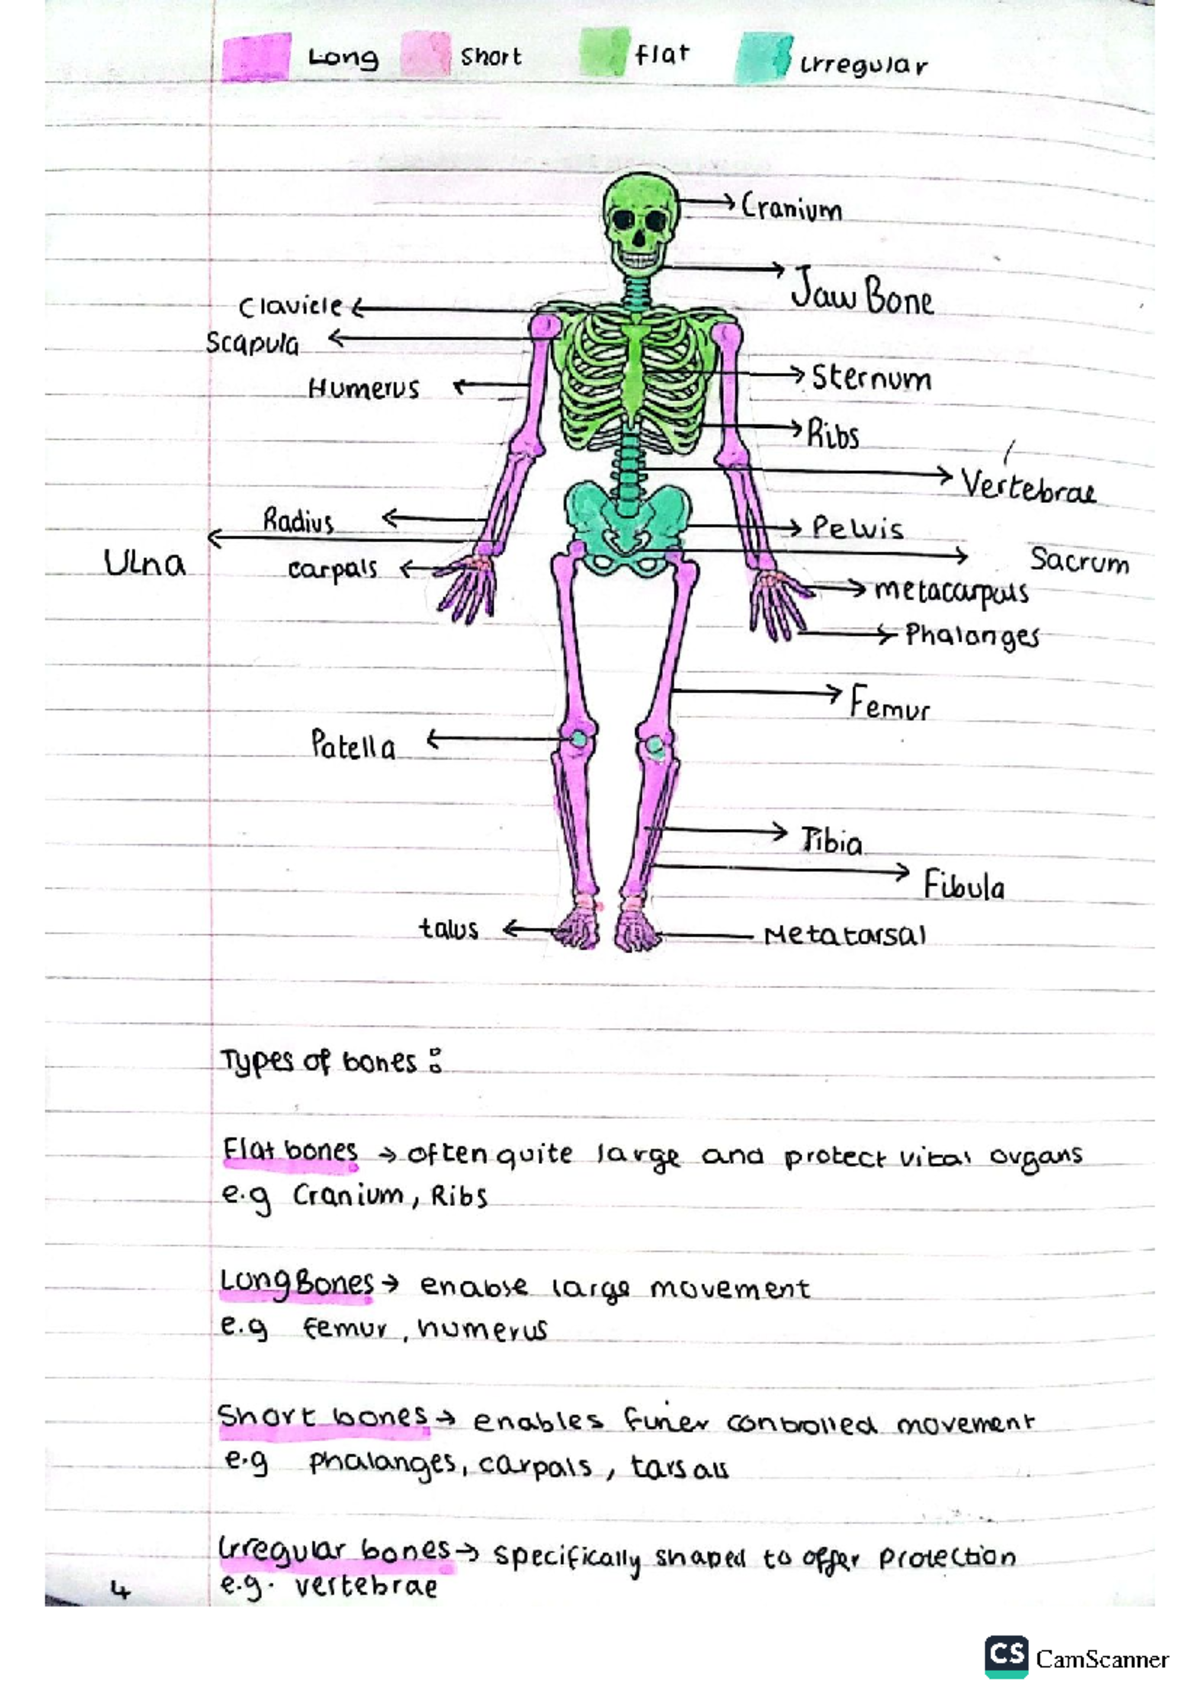 Long Short flat Irregular
Cranium
Jaw Bone
Clavicle
Scapula
Humerus
Sternum
Ribs
Vertebrae
Radius
Pelvis
Ulna
carpals
Sacrum
metacarpals
Phalanges
Femur
Patella
Tibia
Fibula
talus
Metatarsal
Types of bones :
Flat bones → often quite large and protect vital organs
e.g Cranium, Ribs
Long Bones → enable large movement
e.g femur, humerus
Short bones → enables finer controlled movement
e.g phalanges, carpals, tarsals
Irregular bones → specifically shaped to offer protection
e.g. vertebrae
4
CS CamScanner